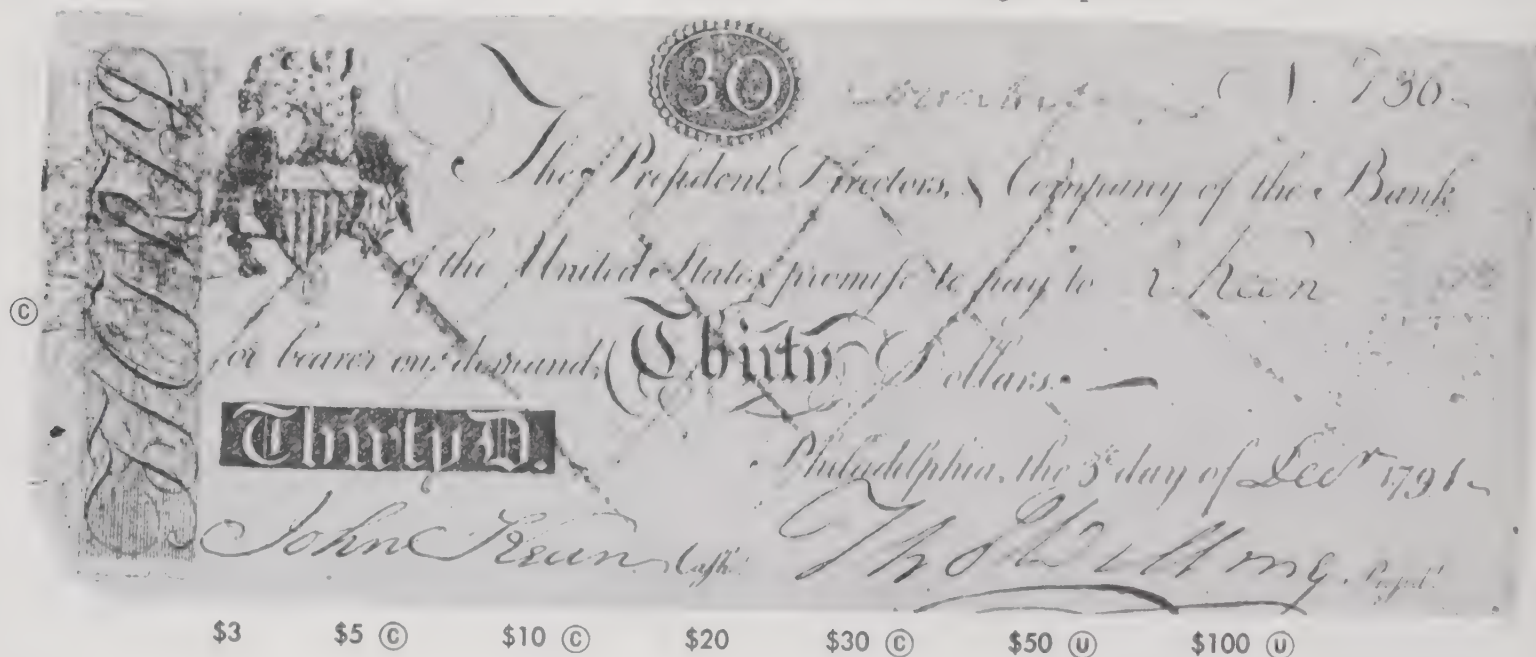 30
N. 730
The President, Directors, & Company of the Bank
of the United States promise to pay to J. Kean
or bearer on demand, Thirty Dollars.
Thirty D.
Philadelphia, the 3d day of Decr 1791
John Kean Cashr. Tho Willing Presidt.
©
$3 $5 © $10 © $20 $30 © $50 Ⓤ $100 Ⓤ